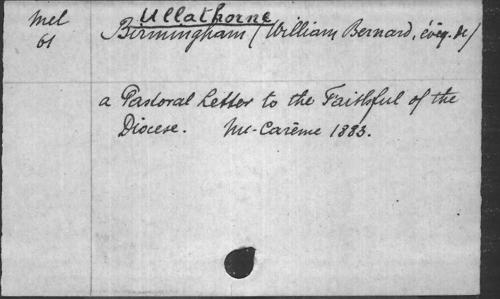 Mel Ullathorne
61 Birmingham (William Bernard, évêq. de)
a Pastoral Letter to the Faithful of the
Diocese. Mi-Carême 1883.